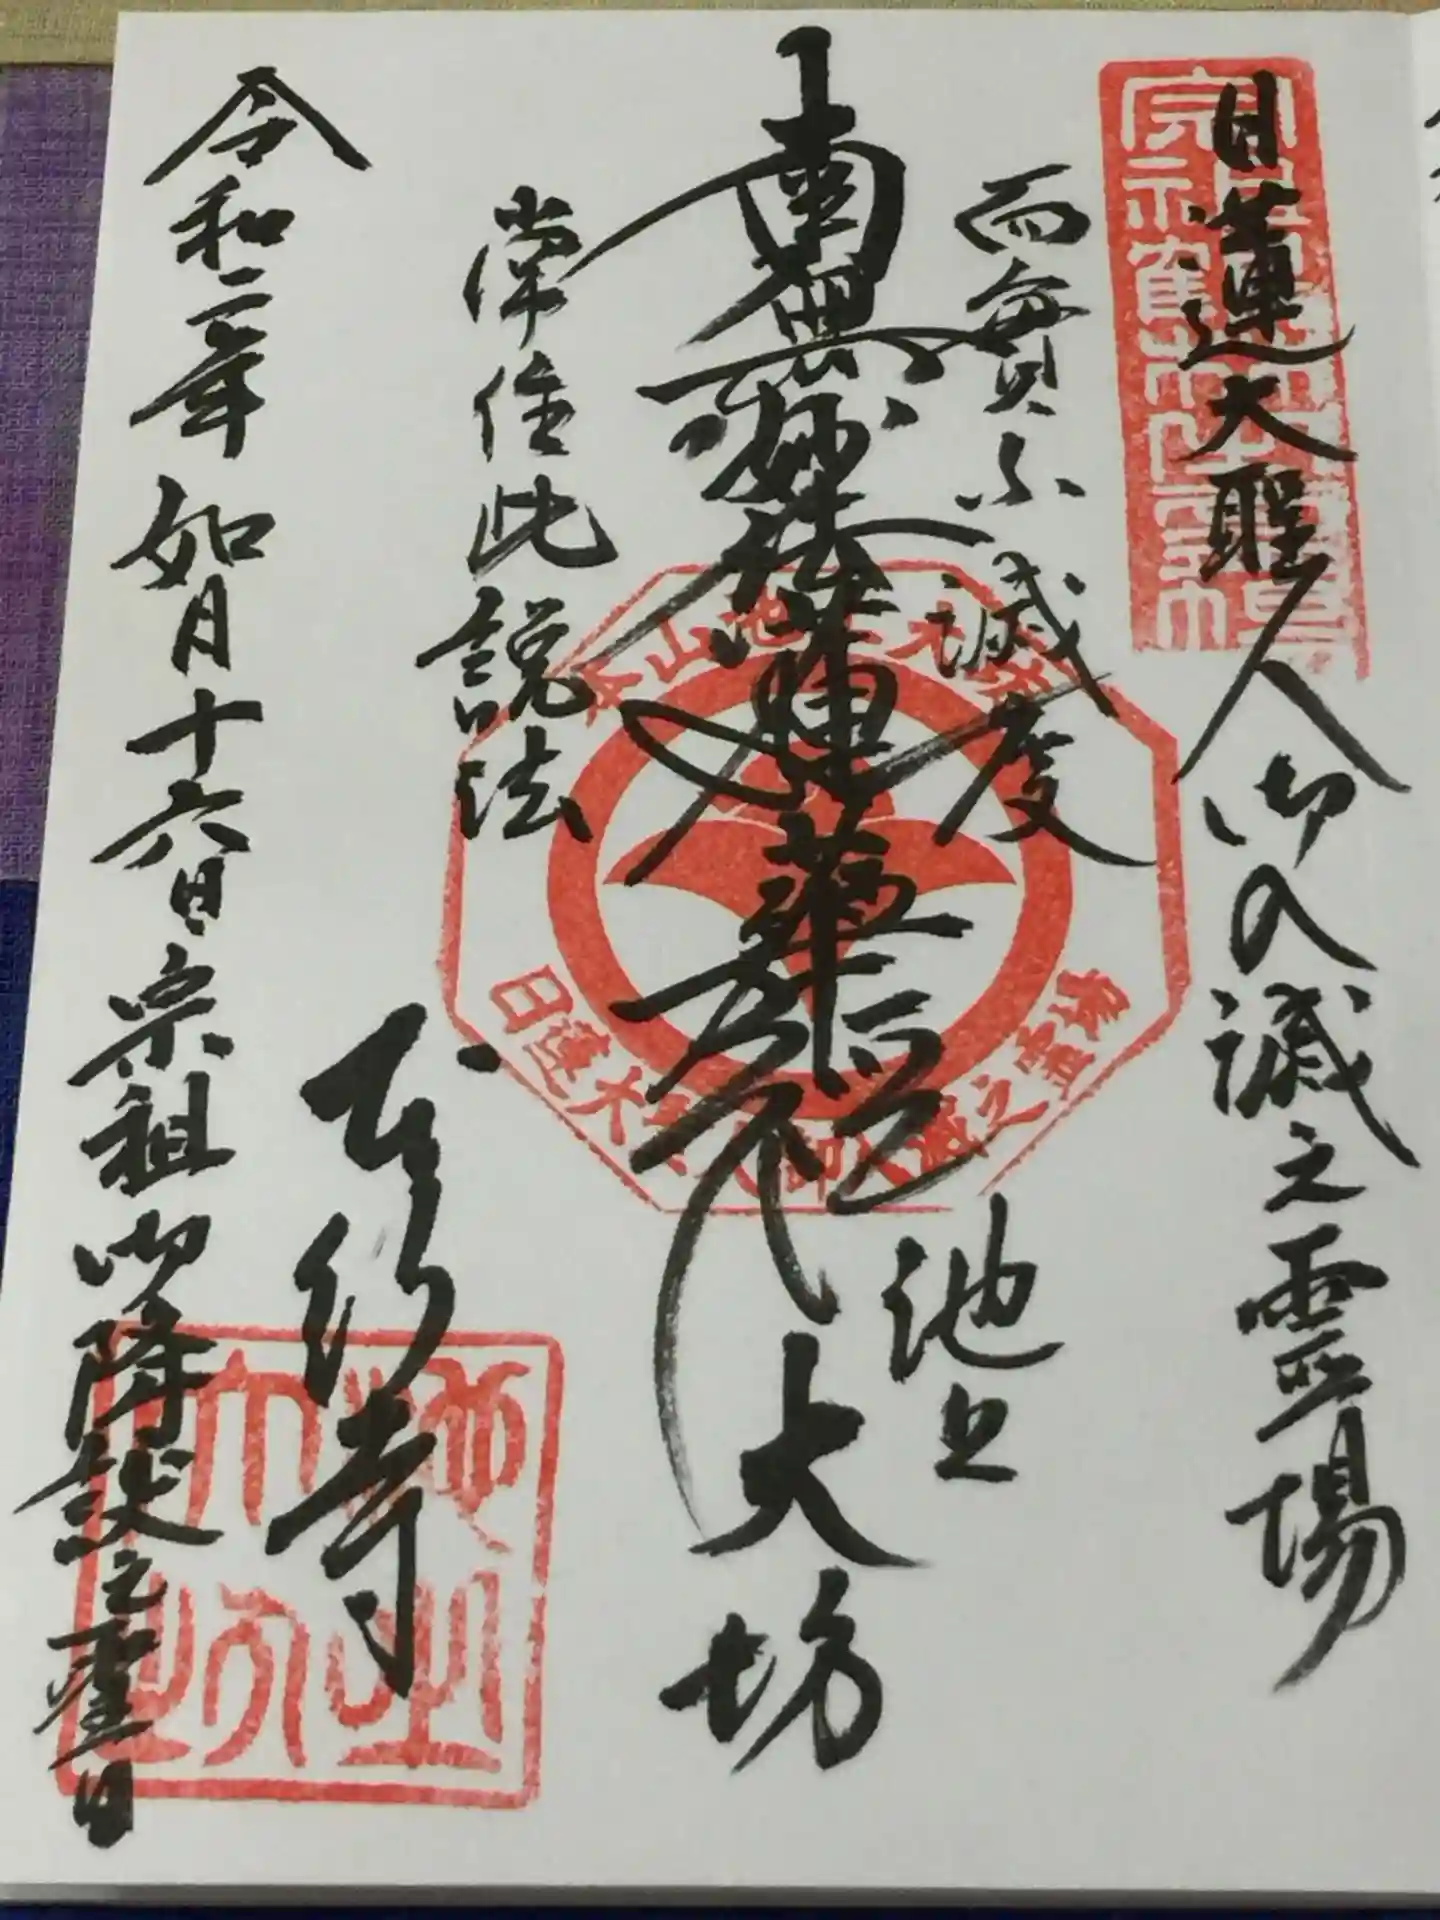 日蓮大聖人御入滅之霊場
而實不滅度
南無妙法蓮華経
常住此説法
池上
大坊
本行寺
令和二年如月十六日宗祖御降誕之聖日
日蓮大聖人御入滅之霊場